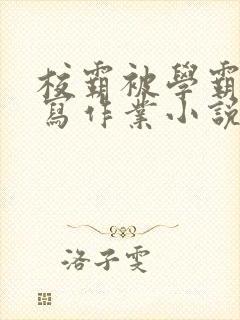 校霸被學霸
寫作業小說
洛子雯